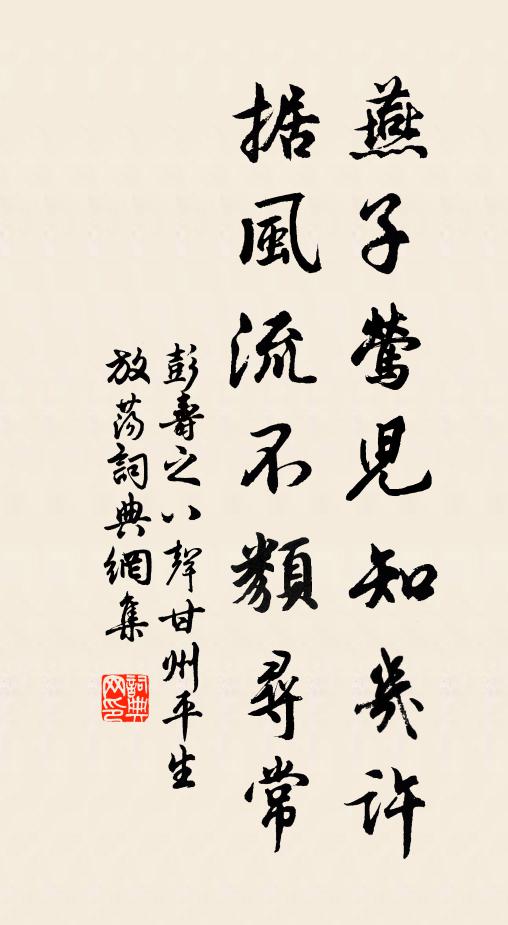 燕子鶯児知幾許
据風流不類尋常
彭壽之八聲甘州平生
放蕩詞典網集
詞典
网印